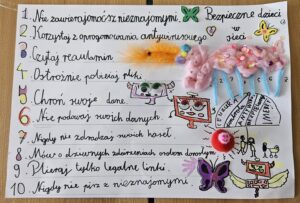 Bezpieczne dzieci
w sieci
1. Nie zawieraj znajomości z nieznajomymi.
2. Korzystaj z oprogramowania antywirusowego
3. Czytaj regulamin
4. Ostrożnie pobieraj pliki
5. Chroń swoje dane.
6. Nie podawaj swoich danych.
7. Nigdy nie zdradzaj swoich haseł.
8. Mów o dziwnych zdarzeniach osobom dorosłym
9. Otwieraj tylko legalne linki.
10. Nigdy nie pisz z nieznajomymi.